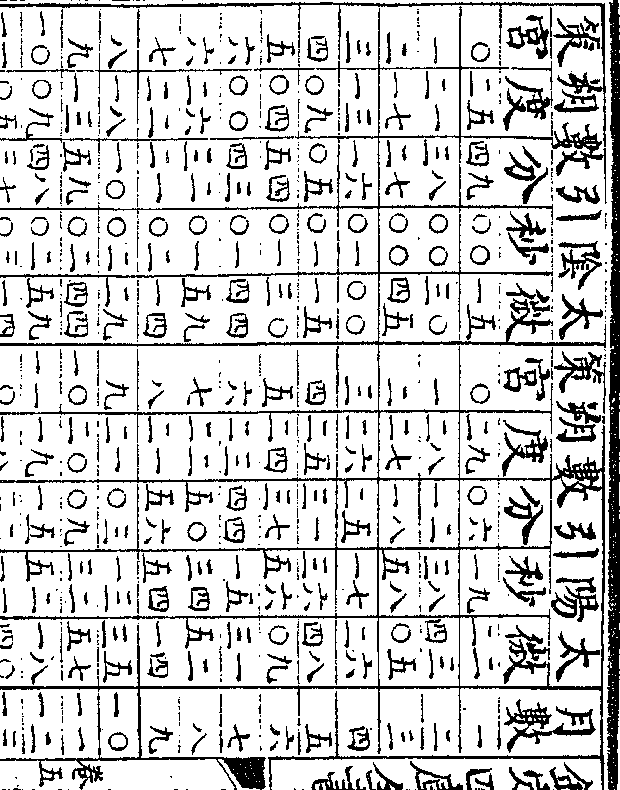 欽定四庫全書
月數 太陽引數朔策 太陰引數朔策
微 秒 分 度 宮 微 秒 分 度 宮
一 二二 一九 〇六 二九 〇 一五 〇〇 四九 二五 〇
二 四三 三八 一二 二八 一 三〇 〇〇 三八 二一 一
三 〇五 五八 一八 二七 二 四五 〇〇 二七 一七 二
四 二六 一七 二五 二六 三 〇〇 〇一 一六 一三 三
五 四八 三六 三一 二五 四 一五 〇一 〇五 〇九 四
六 〇九 五六 三七 二四 五 三〇 〇一 五四 〇四 五
七 三一 一五 四四 二三 六 四四 〇一 四三 〇〇 六
八 五二 三四 五〇 二二 七 五九 〇一 三二 二六 六
九 一四 五四 五六 二一 八 一四 〇二 二一 二二 七
一〇 三五 一三 〇三 二一 九 二九 〇二 一〇 一八 八
一一 五七 三二 〇九 二〇 一〇 四四 〇二 五九 一三 九
一二 一八 五二 一五 一九 一一 五九 〇二 四八 〇九 一〇
卷五